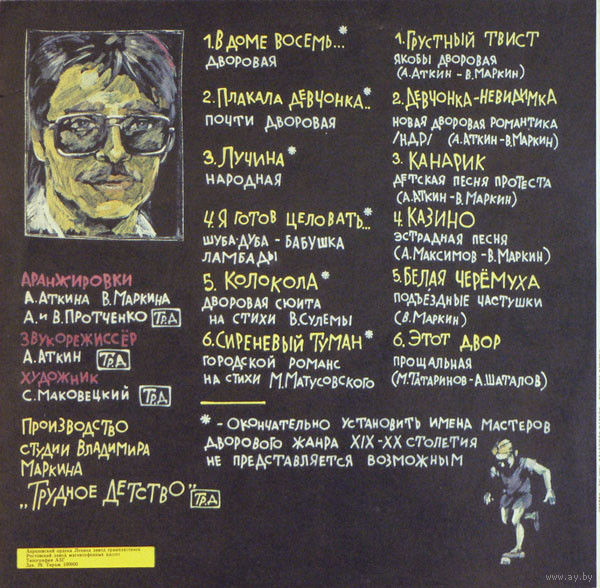 1. В ДОМЕ ВОСЕМЬ...*
ДВОРОВАЯ
2. ПЛАКАЛА ДЕВЧОНКА..*
ПОЧТИ ДВОРОВАЯ
3. ЛУЧИНА*
НАРОДНАЯ
4. Я ГОТОВ ЦЕЛОВАТЬ...*
ШУБА-ДУБА - БАБУШКА
ЛАМБАДЫ
5. КОЛОКОЛА*
ДВОРОВАЯ СЮИТА
НА СТИХИ В. СУЛЕМЫ
6. СИРЕНЕВЫЙ ТУМАН*
ГОРОДСКОЙ РОМАНС
НА СТИХИ М. МАТУСОВСКОГО
1. ГРУСТНЫЙ ТВИСТ
ЯКОБЫ ДВОРОВАЯ
(А. АТКИН - В. МАРКИН)
2. ДЕВЧОНКА-НЕВИДИМКА
НОВАЯ ДВОРОВАЯ РОМАНТИКА
/НДР/ (А. АТКИН - В. МАРКИН)
3. КАНАРИК
ДЕТСКАЯ ПЕСНЯ ПРОТЕСТА
(А. АТКИН - В. МАРКИН)
4. КАЗИНО
ЭСТРАДНАЯ ПЕСНЯ
(А. МАКСИМОВ - В. МАРКИН)
5. БЕЛАЯ ЧЕРЁМУХА
ПОДЪЕЗДНЫЕ ЧАСТУШКИ
(В. МАРКИН)
6. ЭТОТ ДВОР
ПРОЩАЛЬНАЯ
(М. ТАТАРИНОВ - А. ШАТАЛОВ)
АРАНЖИРОВКИ
А. АТКИНА В. МАРКИНА
А. И В. ПРОТЧЕНКО ТР.Д
ЗВУКОРЕЖИССЁР
А. АТКИН ТР.Д
ХУДОЖНИК
С. МАКОВЕЦКИЙ ТР.Д
ПРОИЗВОДСТВО
СТУДИИ ВЛАДИМИРА
МАРКИНА
„ТРУДНОЕ ДЕТСТВО" ТР.Д
* - ОКОНЧАТЕЛЬНО УСТАНОВИТЬ ИМЕНА МАСТЕРОВ
ДВОРОВОГО ЖАНРА XIX-XX СТОЛЕТИЯ
НЕ ПРЕДСТАВЛЯЕТСЯ ВОЗМОЖНЫМ
Апрелевский ордена Ленина завод грампластинок
Ростовский завод магнитофонных кассет
Типография АЗГ
www.ay.by